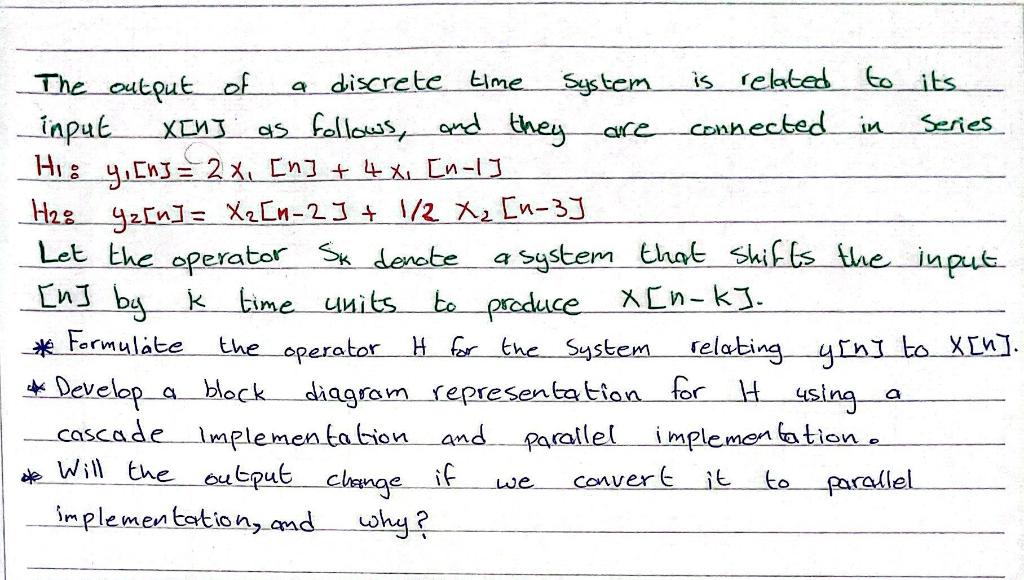 The output of a discrete time system is related to its
input x[n] as follows, and they are connected in series
H1: y1[n] = 2 x1 [n] + 4 x1 [n-1]
H2: y2[n] = x2[n-2] + 1/2 x2 [n-3]
Let the operator Sk denote a system that shifts the input
[n] by k time units to produce x[n-k].
* Formulate the operator H for the system relating y[n] to x[n].
* Develop a block diagram representation for H using a
cascade implementation and parallel implementation.
* Will the output change if we convert it to parallel
implementation, and why?